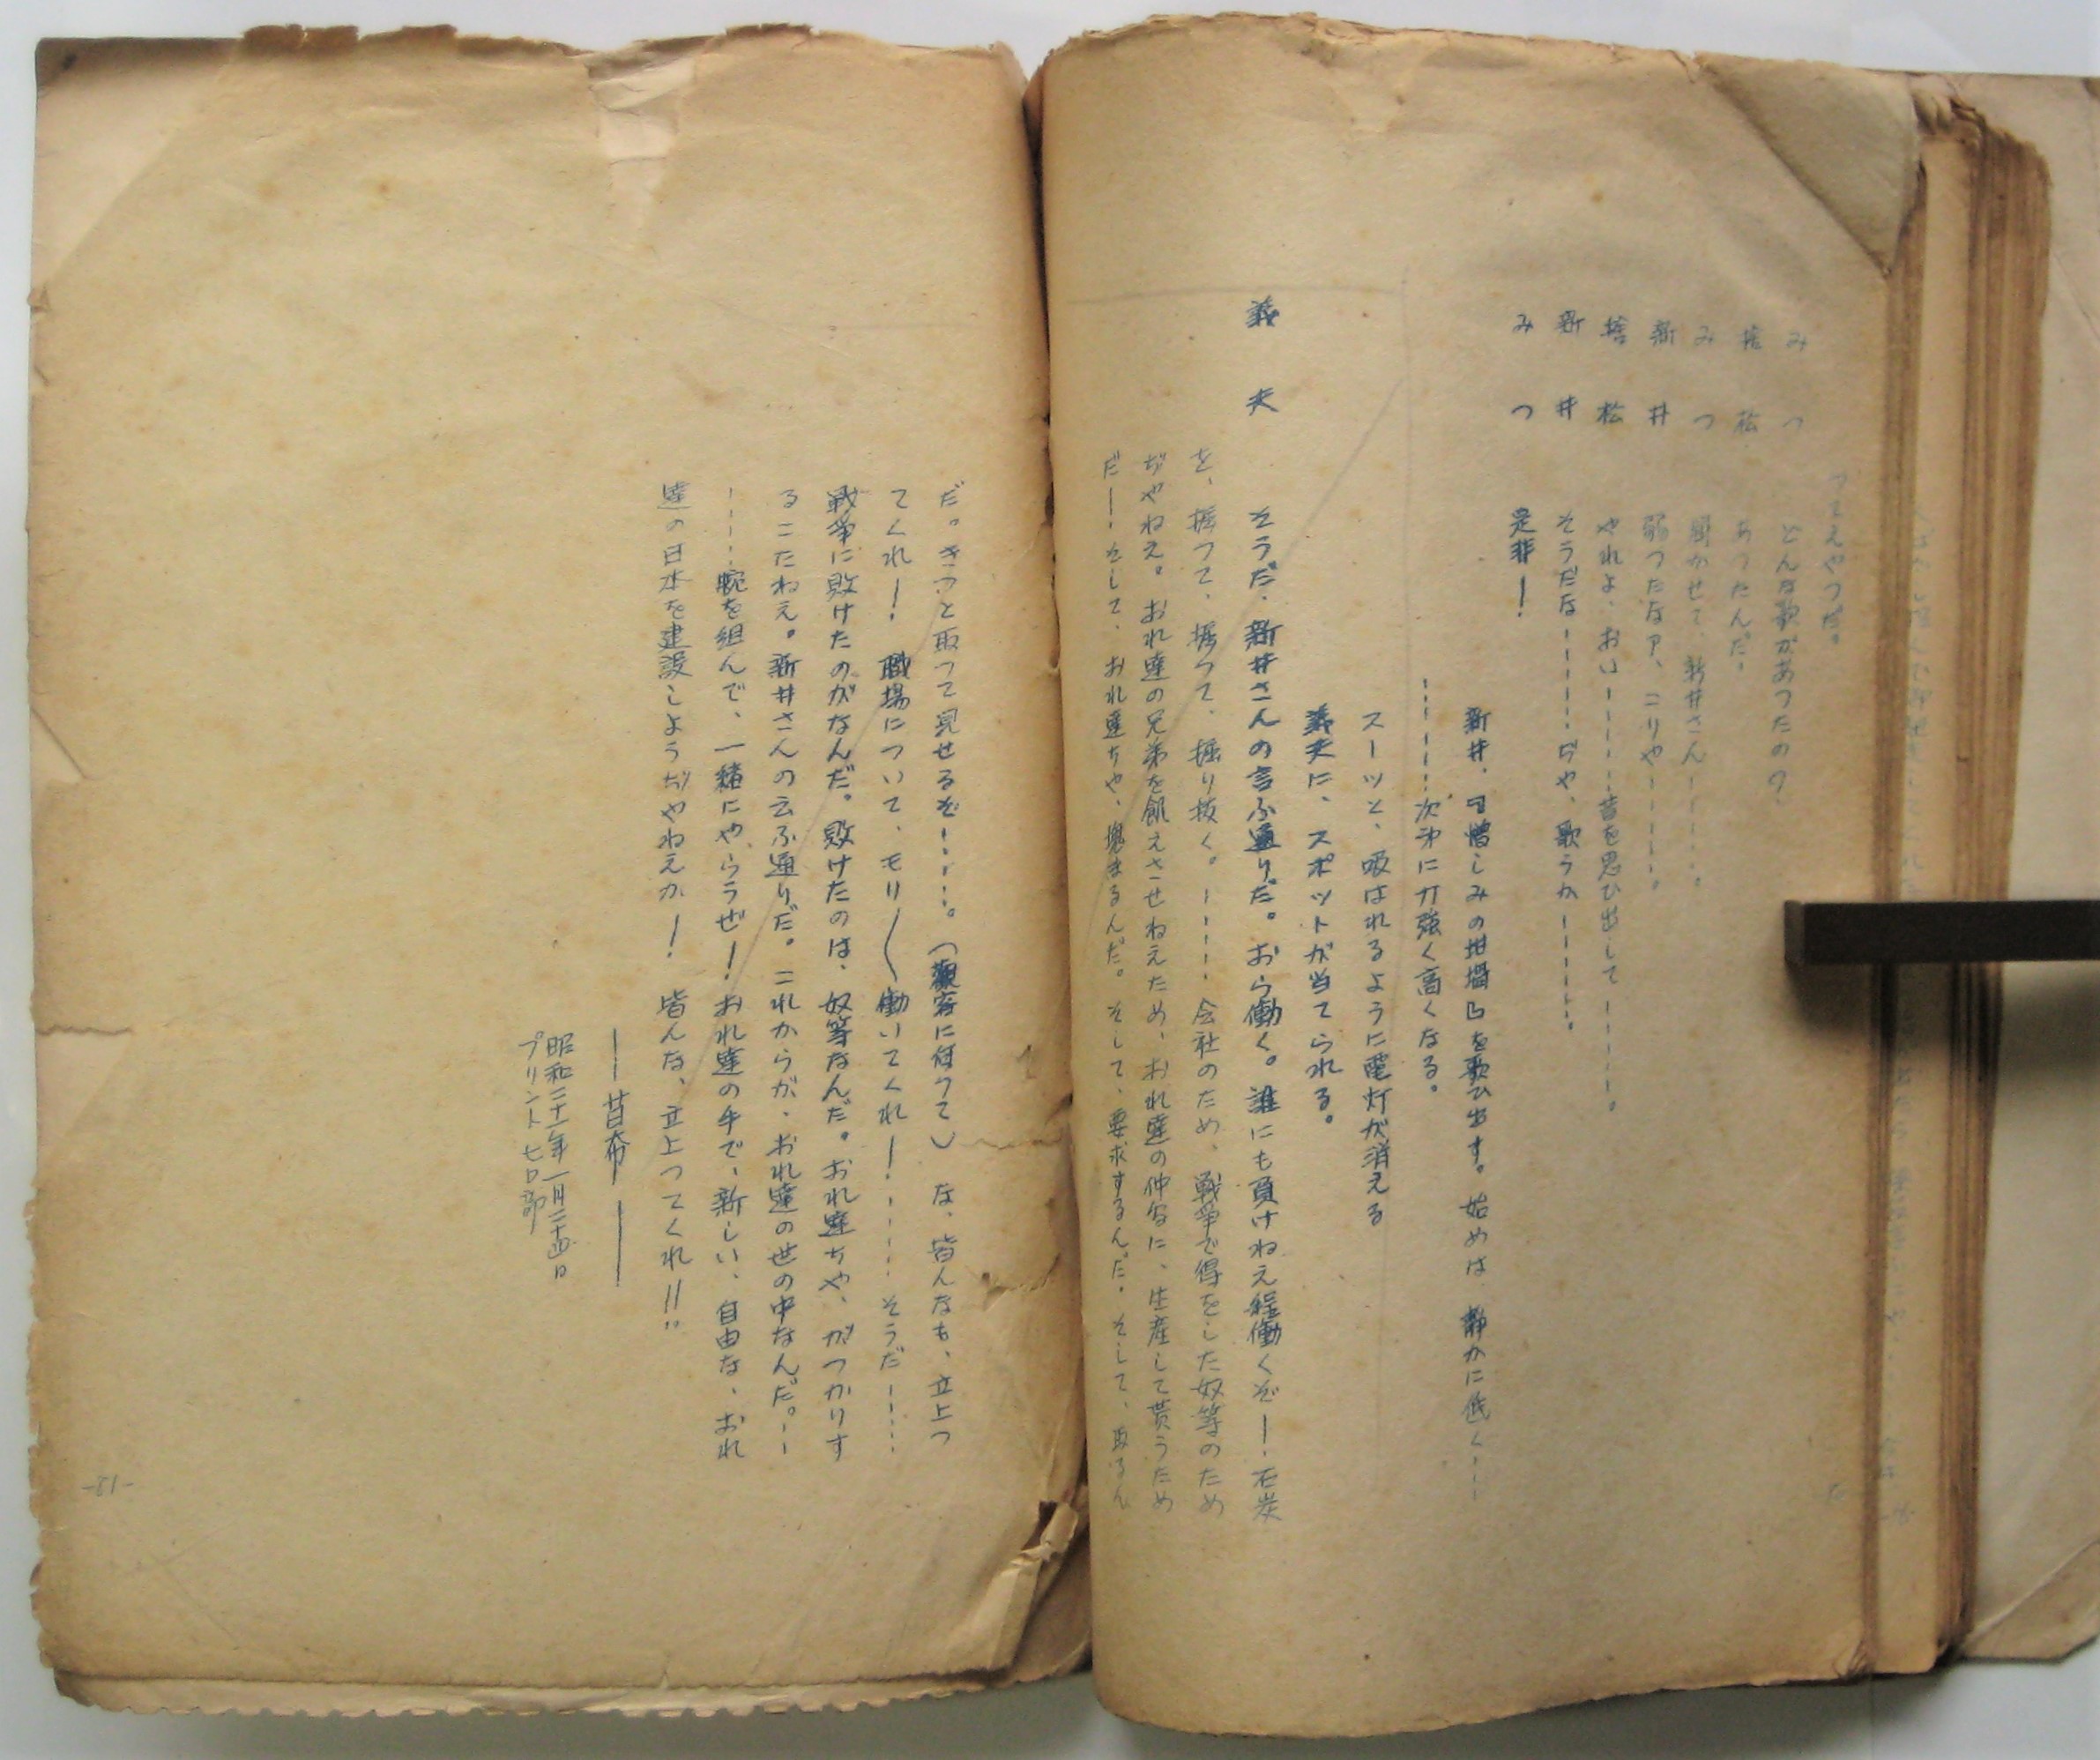 つまえやつだ。
みつ　どんな歌があつたの？
捨松　あつたんだ。
みつ　聞かせて、新井さん－－－－－。
新井　弱つたなア、こりや－－－－－。
捨松　やれよ、おい－－－－－昔を思ひ出して－－－－－。
新井　そうだな－－－－－ぢや、歌うか－－－－－。
みつ　是非！
新井、『憎しみの坩堝』を歌ひ出す。始めは、静かに低く－－－
－－－－－次第に力強く高くなる。
スーツと、吸はれるように電灯が消える
義夫に、スポットが当てられる。
義夫　そうだ、新井さんの言ふ通りだ。おら働く。誰にも負けねえ程働くぞ！石炭
を、掘つて、掘つて、掘り抜く。－－－－会社のため、戦争で得をした奴等のため
ぢやねえ。おれ達の兄弟を飢えさせねえため、おれ達の仲間に、生産して貰うため
だ！そして、おれ達ちや、塊まるんだ。そして、要求するんだ。そして、取るん
だ。きつと取つて見せるぞ！－－－－。（観客に付つて）　な、皆んなも、立上つ
てくれ！　職場について、モリ〱働いてくれ！－－－－そうだ－－－－－
戦争に敗けたのがなんだ。敗けたのは、奴等なんだ。おれ達ちや、がつかりす
るこたねえ。新井さんの云ふ通りだ。これからが、おれ達の世の中なんだ。－－
－－－－腕を組んで、一緒にやらうぜ！おれ達の手で、新しい、自由な、おれ
達の日本を建設しようぢやねえか！　皆んな、立上つてくれ！！
昭和二十一年一月二十四日
プリント　ヒロ部
-81-